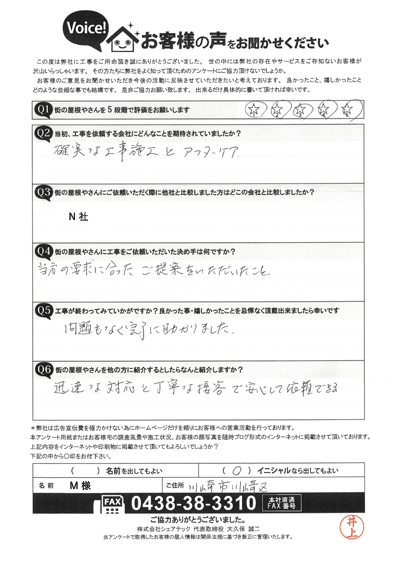 Voice! お客様の声をお聞かせください
この度は弊社に工事をご用命頂き誠にありがとうございました。 世の中には弊社の存在やサービスをご存知ないお客様が
沢山いらっしゃいます。 その方たちに弊社をよく知って頂くためのアンケートにご協力下けないでしょうか。
お客様のご意見をお聞かせいただき今後の活動に反映させていただきたいと考えております。 良かったこと、嬉しかったこと
どのような些細な事でも結構です。 是非ご協力お願い致します。 出来るだけ具体的に書いて頂ければ幸いです。
Q1 街の屋根やさんを5段階で評価をお願いします ☆ ☆ ☆ ☆ ☆
Q2 当初、工事を依頼する会社にどんなことを期待されていましたか?
確実な工事施工とアフターケア
Q3 街の屋根やさんにご依頼いただく際に他社と比較しました方はどこの会社と比較しましたか?
N 社
Q4 街の屋根やさんに工事をご依頼いただいた決め手は何ですか?
当方の要求に合ったご提案をいただいたこと
Q5 工事が終わってみていかがですか?良かった事・嬉しかったことを忌憚なく頂戴出来ましたら幸いです
問題もなく完了に助かりました。
Q6 街の屋根やさんを他の方に紹介するとしたらなんと紹介しますか?
迅速な対応と丁寧な接客で安心して依頼できる
*弊社は広告宣伝費を極力かけない為にホームページだけを頼りにお客様への営業活動を行っております。
本アンケート用紙またはお客様宅の調査風景や施工状況、お客様の顔写真を随時ブログ形式のインターネットに掲載させて頂いております。
上記内容をインターネットや印刷物に掲載させて頂いてもよろしいでしょうか?
下記の中から〇印をお付下さい。
( ) 名前を出してもよい ( 〇 ) イニシャルなら出してもよい
名 前 M 様 ご住所 川崎市川崎区
FAX 0438-38-3310 本社直通 FAX番号
ご協力ありがとうございました。
株式会社シェアテック 代表取締役 大久保 誠二
当アンケートで取得したお客様の個人情報は関係法規に基づき厳正に管理いたします。
井上